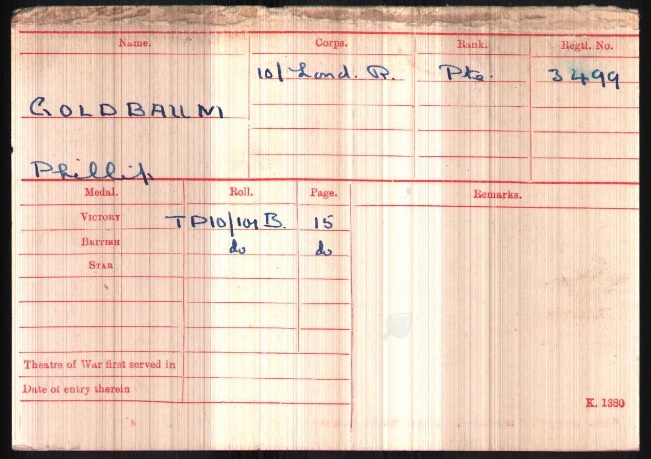 Name. Corps. Rank. Regtl. No.
10/ Lond. R. Pte. 3499
GOLDBAUM
Phillip
Medal. Roll. Page. Remarks.
VICTORY TP10/101 B. 15
BRITISH do do
STAR
Theatre of War first served in
Date of entry therein
K. 1380